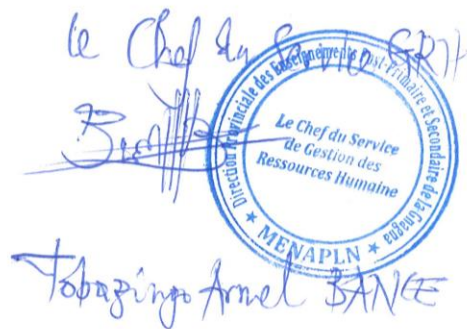 le Chef du Service GRH
Direction Provinciale des Enseignements Post-Primaire et Secondaire de la Gnagna
Le Chef du Service
de Gestion des
Ressources Humaine
★ MENAPLN ★
Tobazingo Armel BANCE